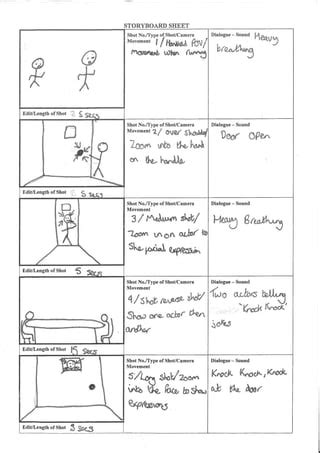 STORYBOARD SHEET
Shot No./Type of Shot/Camera
Movement 1/ Handheld POV/
movement when running
Dialogue – Sound Heavy
breathing
Edit/Length of Shot 5 Secs
Shot No./Type of Shot/Camera
Movement 2/ over shoulder
Zoom into the hand
on the handle
Dialogue – Sound
Door OPen
Edit/Length of Shot 5 Secs
Shot No./Type of Shot/Camera
Movement
3/Medium shot/
Zoom in on actor to
Show facial expression
Dialogue – Sound
Heavy Breathing
Edit/Length of Shot 5 secs
Shot No./Type of Shot/Camera
Movement
4/Shot reverse shot/
Show one actor then
another
Dialogue – Sound
Two actors telling
"Knock Knock"
jokes
Edit/Length of Shot 15 Secs
Shot No./Type of Shot/Camera
Movement
5/Long Shot/Zoom
into the face to show
expressions
Dialogue – Sound
Knock Knock, Knock
at the door.
Edit/Length of Shot 3 secs